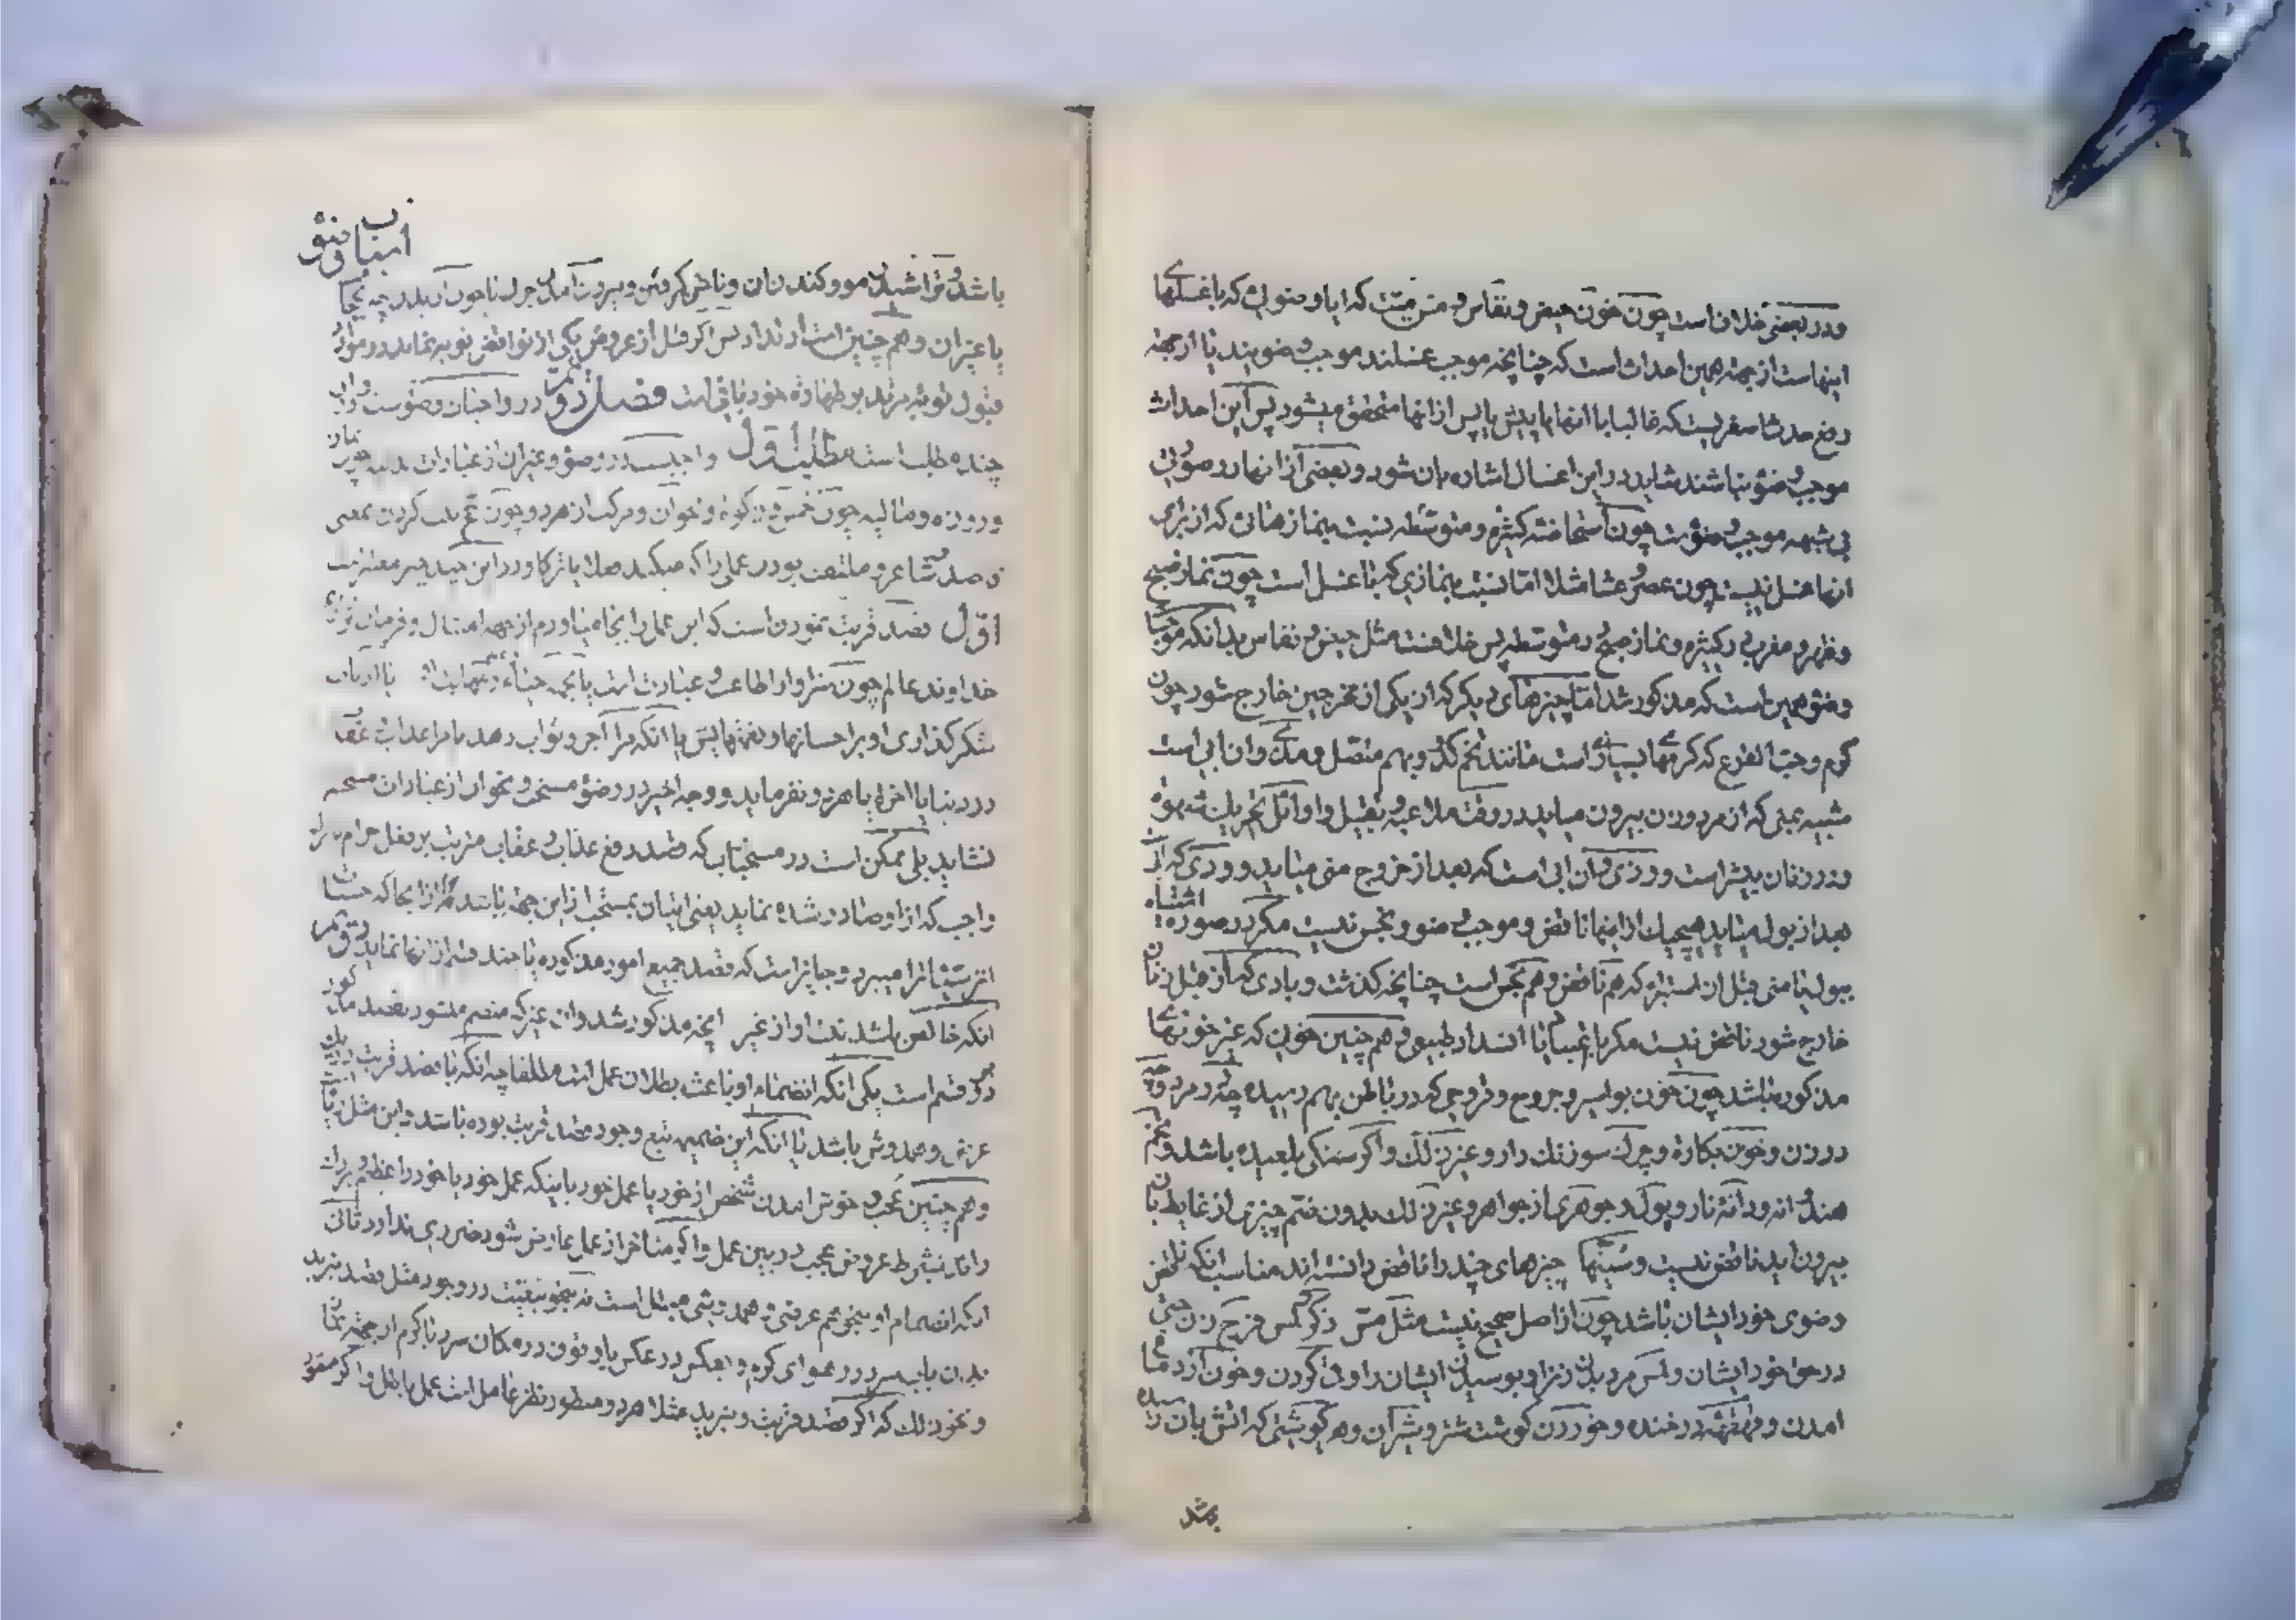 ودر بعضی خلاف است چون خون حیض و نفاس و مس میت که ایا وضوئی که با غسلهای
اینهاست از جهة همین احداث است که چنانچه موجب غسلند موجب وضو نیند یا از جهة
رفع حدث اصغریست که غالبا با انها یا پیش یا پس از انها متحقق میشود پس این احداث
موجب وضو نباشند شاید در این اغسال اشاره بان شود و بعضی از انها در صورتی
بی شبهه موجب وضوست چون استحاضه کثیره و متوسطه نسبت بنمازهائی که از برای
انها غسل نیست چون عصر و عشا مثلا اما نسبت بنمازی که با غسل است چون نماز صبح
و ظهر و مغرب در کثیره و نماز صبح در متوسطه پس خلافست مثل حیض و نفاس بدانکه موجب
وضو همین است که مذکور شد اما چیزهای دیگر که از یکی از مخرجین خارج شود چون
کرم و حب القرع که کرمهای بسیار است مانند تخم کدو بهم متصل و مذی وان ابی است
شبیه بمنی که از مرد وزن بیرون میاید در وقت ملاعبه و تقبیل و اوائل تحریک شهوة
و در زنان بیشتر است و وذی وان ابی است که بعد از خروج منی میاید و ودی که ان
بعد از بول میاید هیچیک از اینها ناقض و موجب وضو و نجس نیست مکر در صورة اشتباه
ببول یا منی قبل از استبراء که هم ناقض و هم نجس است چنانچه کذشت و بادی که از قبل زنان
خارج شود ناقض نیست مکر با اعتیاد یا انسداد طبیعی و هم چنین خونی که غیر خونهای
مذکوره باشد چون خون بواسیر و جروح و قروحی که در باطن بهم رسیده چه در مرد و چه
در زن و خون بکارة و چرک سوزنک دار و غیر ذلک و اکر سنکی بلعیده باشد و غیر
هندوانه و دانه نار و پول و جوهری از جواهر و غیر ذلک بدون ضم چیزی از غایط بان
بیرون اید ناقض نیست و سنیها چیزهای چند را ناقض دانسته اند مناسب انکه ناقض
وضوی خود ایشان باشد چون از اصل صحیح نیست مثل مس ذکر و مس فرج زن حتی
در حق خود ایشان و لمس مرد بدن زنرا و بوسیدن ایشان را و قی کردن و خون از دماغ
امدن و قهقهه در خنده و خوردن کوشت شتر و شیر آن و هر کوشتی که اتش بان رسیده
باشد
واجبات وضو
باشد و تراشیدن مو و کندن ان و ناخن کرفتن و بیرون آمدن چرک
یا غیر ان و هم چنین است ارتداد پس اکر قبل از عروض یکی از نواقض توبه نماید در موارد
قبول توبه مرتد بر طهارة خود باقیست فصل دوم در واجبات وضوست و
چند مطلب است مطلب اول واجبست در وضو و غیر ان از عبادات بدنیه چون نماز
و روزه و مالیه چون خمس و زکوة و نحو ان و مرکب از هر دو چون حج نیت کردن بمعنی
قصد
اول قصد قربت نمودن است که این عمل را بجا میاورم از جهة امتثال و فرمان
خداوند عالم چون سزاوار اطاعت و عبادت است یا بجهة
شکر کذاری او بر احسانها و نعمتهایش یا انکه مرا اجر و ثواب دهد یا مرا عذاب و عقاب
در دنیا یا اخرة یا هر دو نفرماید و وجه اخیر در وضو مستحب و نحو ان از عبادات مستحبه
نشاید بلی ممکن است در مستحبات که قصد رفع عذاب و عقاب مترتب بر فعل حرام یا ترک
واجب که از او صادر شده نماید یعنی اتیان بمستحب از این جهة باشد از انجا که حسنات
اثر سیئات را میبرد و جایز است که قصد جمیع امور مذکوره یا چند قسم از انها نماید دوم
انکه خالص باشد نیت او از غیر انچه مذکور شد وان غیر که منضم میشود بقصد مذکور
بر دو قسم است یکی انکه انضمام او باعث بطلان عمل است مطلقا چه انکه با قصد قربت
عرض و همدوش باشد یا انکه این ضمیمه تبع وجود قصد قربت بوده باشد و این مثل ریا
و هم چنین عجب و خوش امدن شخص از خود یا عمل خود باینکه عمل خود یا خود را عظیم
داند بشرط عروض عجب در بین عمل و اکر متاخر از عمل عارض شود ضرری ندارد ثانی
انکه انضمام او بنحو هم عرضی و همدوشی مبطل است نه بنحو تبعیت در وجود مثل قصد تبرید
بدن باب سرد در هوای کرم و بعکس در عکس یا وقوف در مکان سرد یا کرم از جهة نماز
و نحو ذلک که اکر قصد قربت و تبرید مثلا هر دو منظور نظر عامل است عمل باطل و اکر مقصود